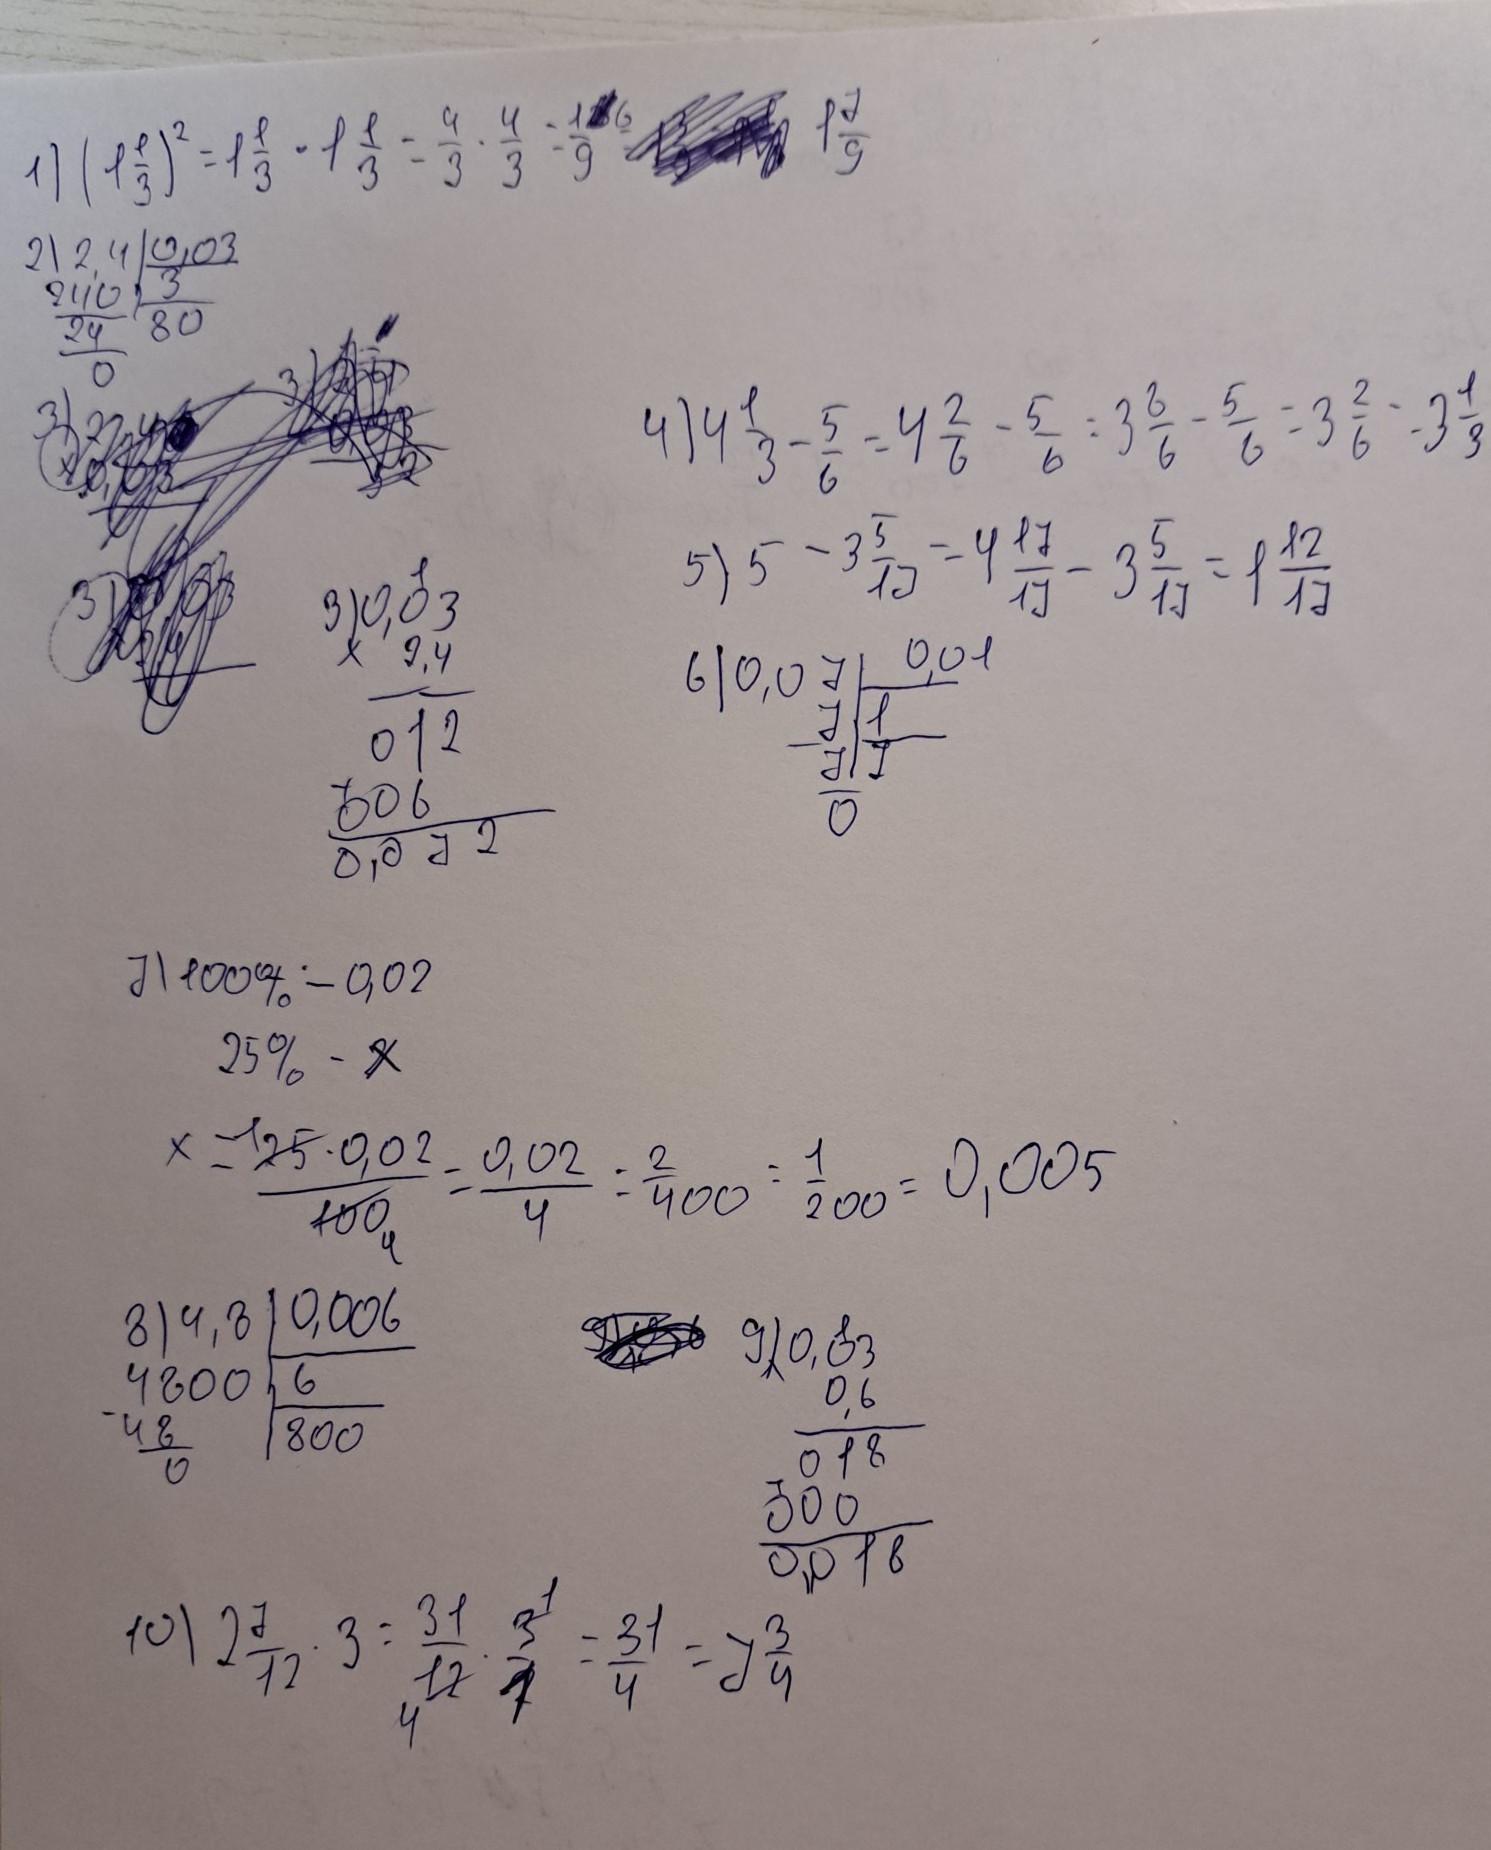 1) (1 1/3)² = 1 1/3 · 1 1/3 = 4/3 · 4/3 = 16/9 = 1 7/9
2) 2,4 | 0,03
240 | 3
24 | 80
0
3) 0,03
× 2,4
012
006
0,072
4) 4 1/3 - 5/6 = 4 2/6 - 5/6 = 3 8/6 - 5/6 = 3 2/6 = 3 1/3
5) 5 - 3 5/17 = 4 17/17 - 3 5/17 = 1 12/17
6) 0,07 | 0,01
7 | 1
7 | 7
0
7) 100% - 0,02
25% - x
x = 25 · 0,02 / 100 = 0,02/4 = 2/400 = 1/200 = 0,005
8) 4,8 | 0,006
4800 | 6
-48 | 800
0
9) 0,03
× 0,6
018
000
0,018
10) 2 7/12 · 3 = 31/12 · 3/1 = 31/4 = 7 3/4